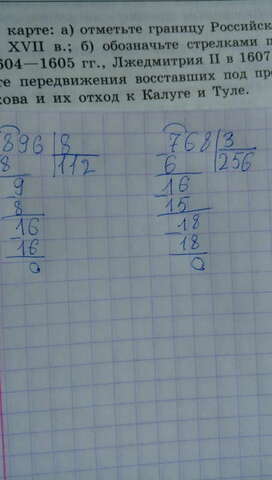 карте: а) отметьте границу Российск
XVII в.; б) обозначьте стрелками п
604—1605 гг., Лжедмитрия II в 1607
те передвижения восставших под пр
кова и их отход к Калуге и Туле.
896 8
8 112
9
8
16
16
0
768 3
6 256
16
15
18
18
0